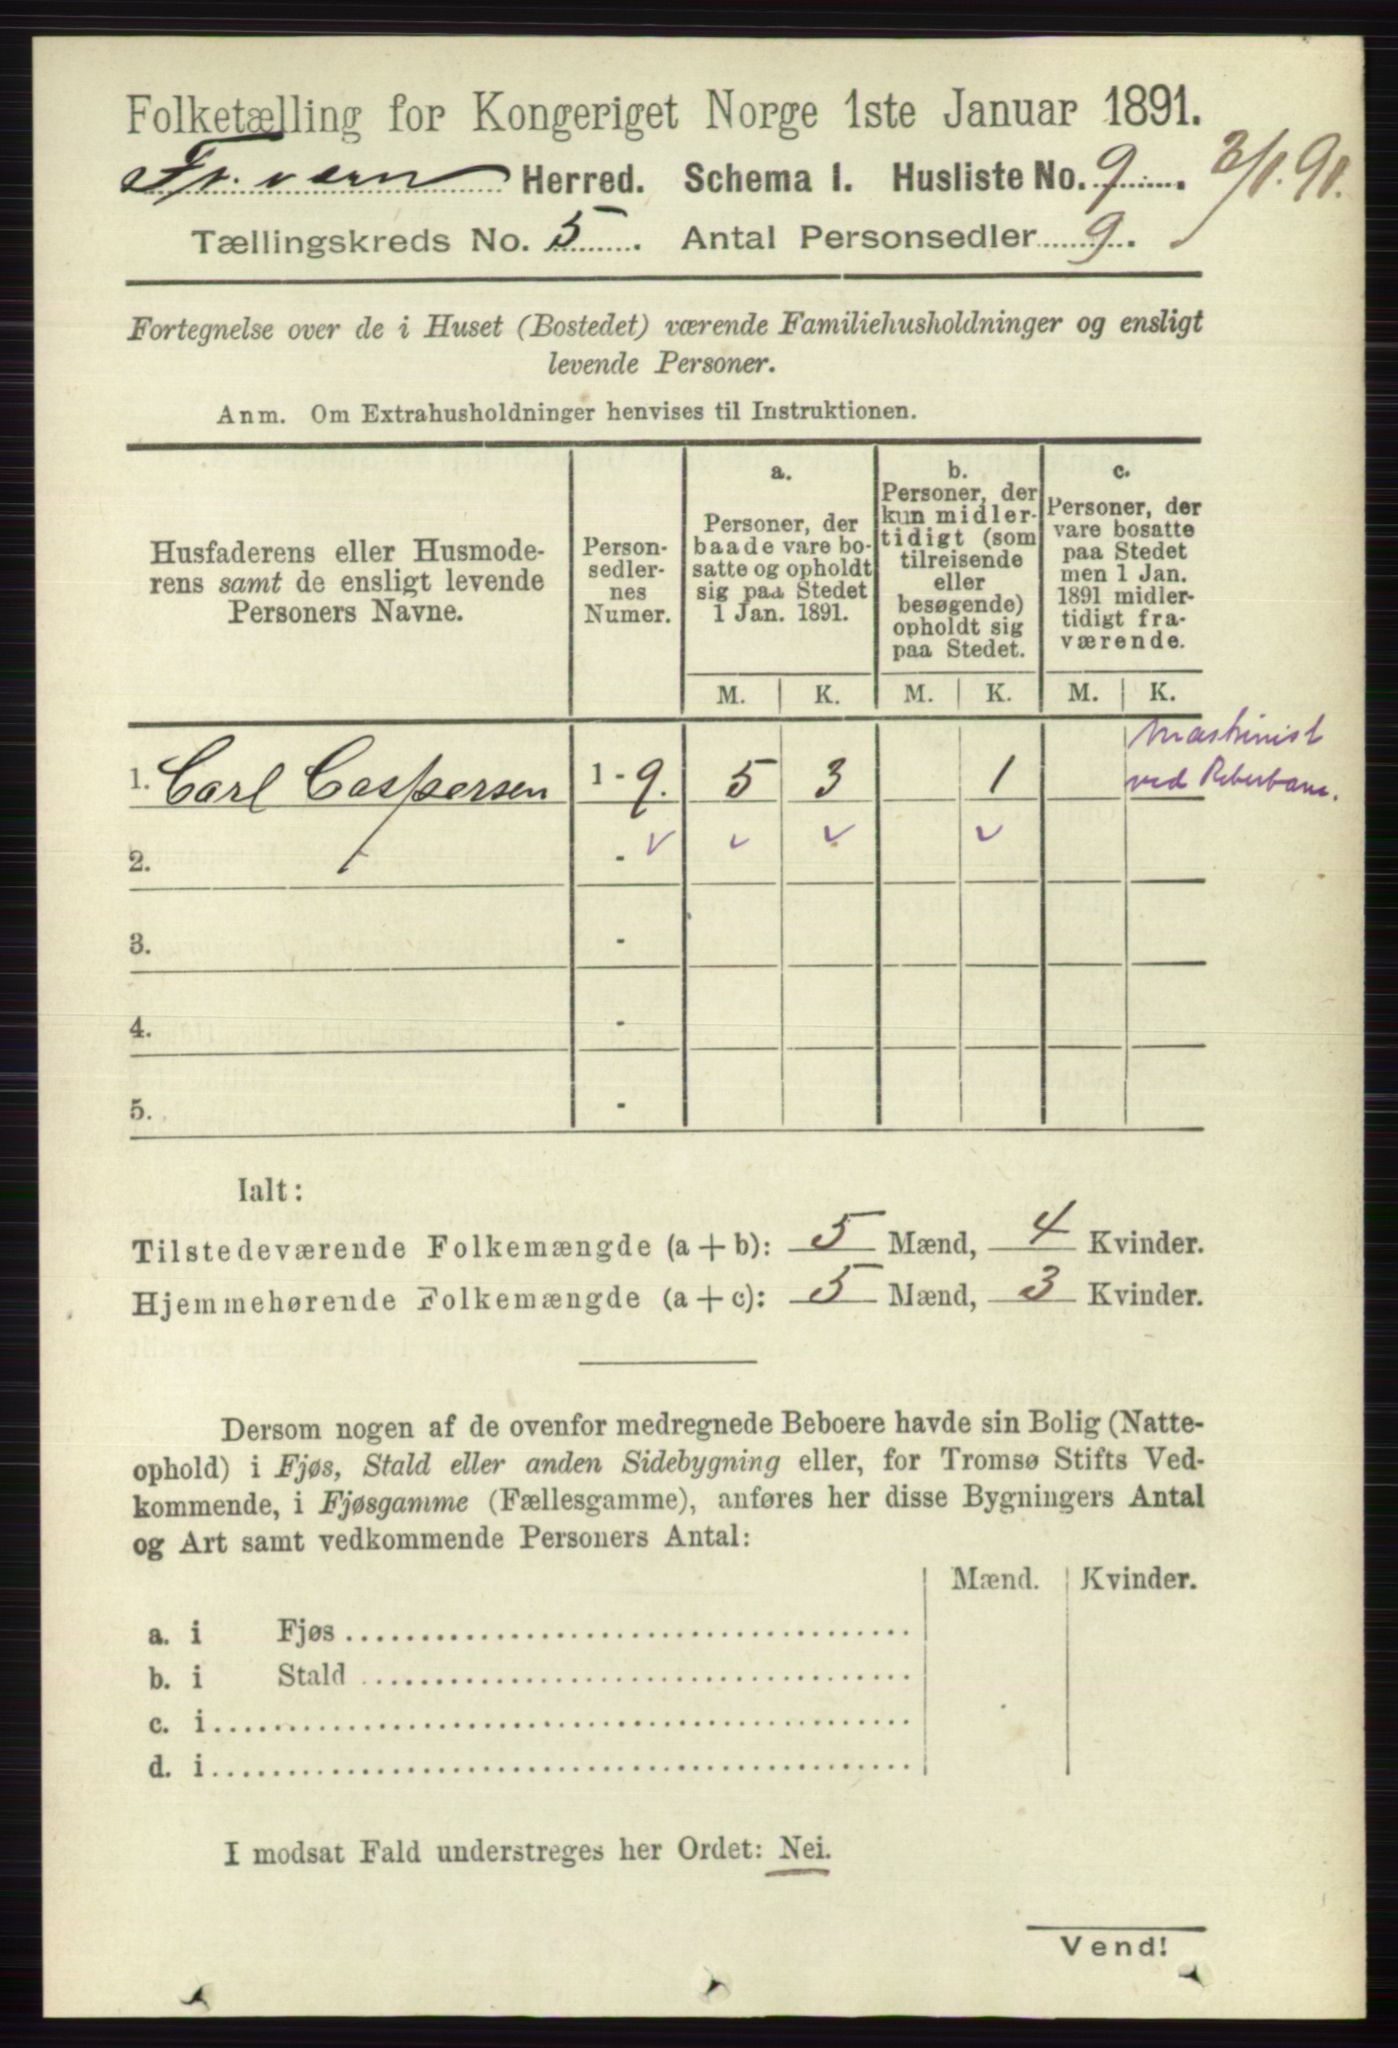 Folketælling for Kongeriget Norge 1ste Januar 1891.
Fr. værn Herred. Schema 1. Husliste No. 9. 2/1.91.
Tællingskreds No. 5. Antal Personsedler 9.
Fortegnelse over de i Huset (Bostedet) værende Familiehusholdninger og ensligt
levende Personer.
Anm. Om Extrahusholdninger henvises til Instruktionen.
Husfaderens eller Husmode-
rens samt de ensligt levende
Personers Navne.
Person-
sedler-
nes
Numer.
a.
Personer, der
baade vare bo-
satte og opholdt
sig paa Stedet
1 Jan. 1891.
b.
Personer, der
kun midler-
tidigt (som
tilreisende
eller
besøgende)
opholdt sig
paa Stedet.
c.
Personer, der
vare bosatte
paa Stedet
men 1 Jan.
1891 midler-
tidigt fra-
værende.
M. K. M. K. M. K.
1. Carl Caspersen 1 - 9. 5 3 1
Maskinist
ved Reberbane.
2. -
3. -
4. -
5. -
Ialt:
Tilstedeværende Folkemængde (a + b): 5 Mænd, 4 Kvinder.
Hjemmehørende Folkemængde (a + c): 5 Mænd, 3 Kvinder.
Dersom nogen af de ovenfor medregnede Beboere havde sin Bolig (Natte-
ophold) i Fjøs, Stald eller anden Sidebygning eller, for Tromsø Stifts Ved-
kommende, i Fjøsgamme (Fællesgamme), anføres her disse Bygningers Antal
og Art samt vedkommende Personers Antal:
Mænd. Kvinder.
a. i Fjøs
b. i Stald
c. i
d. i
I modsat Fald understreges her Ordet: Nei.
Vend!